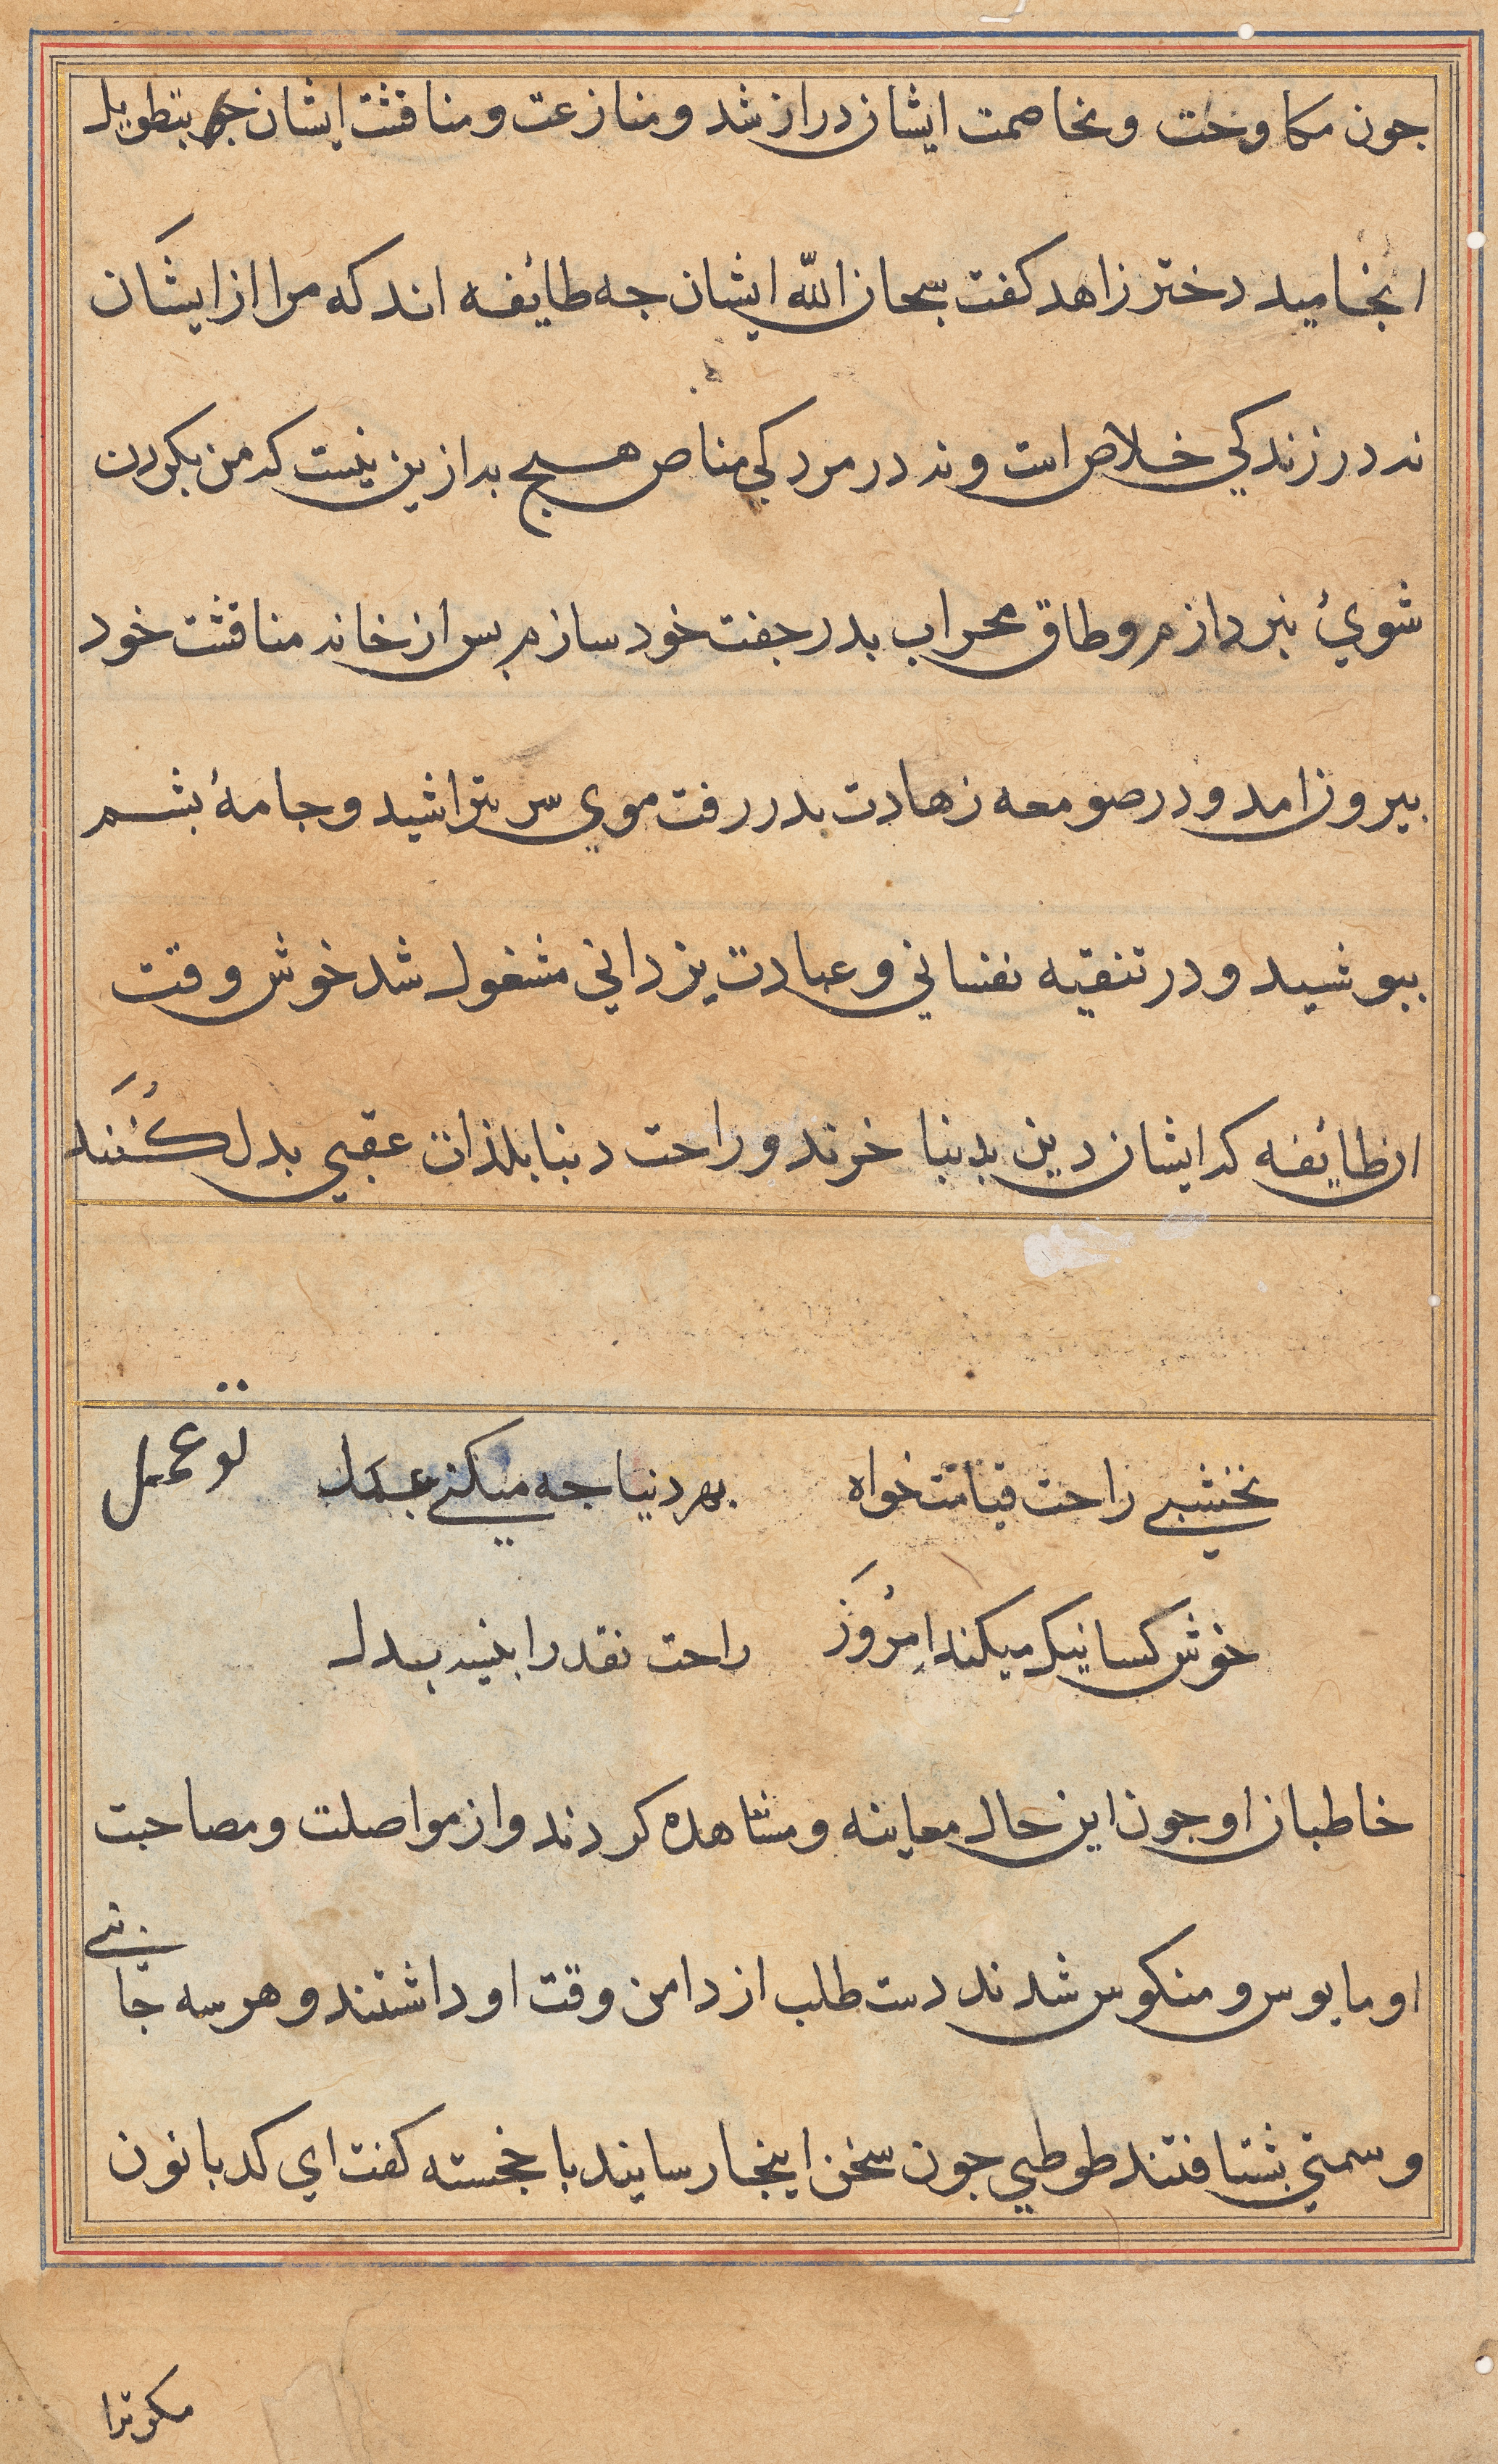 جون مكاوحت ومخاصمت ايشان دراز شد ومنازعت ومناقشت ايشان بتطويل
انجاميد دختر زاهد كفت سبحان الله ايشان جه طائفه اند كه مرا از ايشان
نه در زندكي خلاص است ونه در مردكي مناص هيج به ازين نيست كه من بكردن
شوي نپردازم وطاق محراب بدر جفت خود سازم بس از خانه مناقشت خود
بيرون امد ودر صومعه زهادت بدر رفت موي سر بتراشيد وجامهٔ بشم
ببوشيد ودر تنقيه نفساني وعبادت يزداني مشغول شد خوش وقت
ان طائفه كه ايشان دين بدنيا خرند وراحت دنيا بلذات عقبي بدل كنند
نخشبي راحت قيامت خواه بهر دنيا جه ميكني عمل تو عمل
خوش كسانيك ميكند امروز راحت نقد را بنسيه بدل
خاطبان او جون اين حال معاينه ومشاهده كردند واز مواصلت ومصاحبت
او مايوس ومنكوس شدند دست طلب از دامن وقت او داشتند وهر سه جانبي
وسمتي بشتافتند طوطي جون سخن اينجا رسانيد با خجسته كفت اي كدبانون
مكر ترا